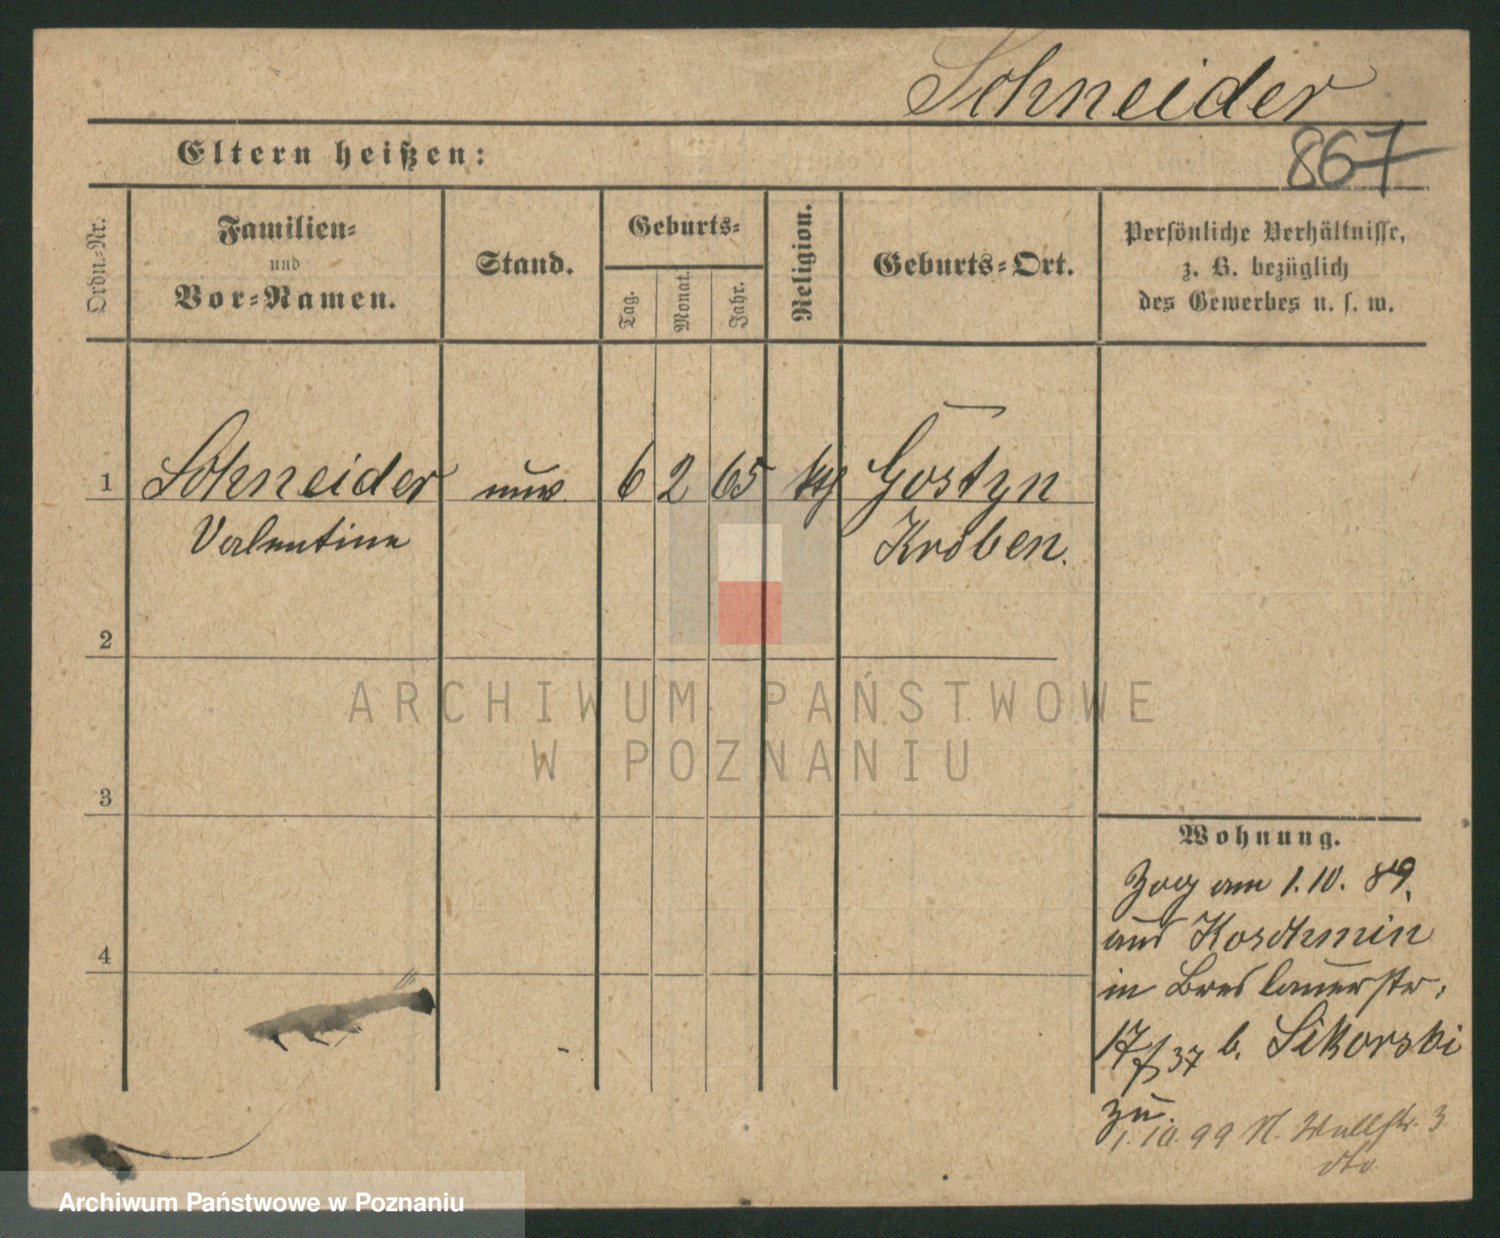 Schneider
867
Eltern heißen:
Ordn.-Nr.
Familien-
und
Vor-Namen.
Stand.
Geburts-
Tag.
Monat.
Jahr.
Religion.
Geburts-Ort.
Persönliche Verhältnisse,
z. B. bezüglich
des Gewerbes u. s. w.
1 Schneider 6 2 65 Gostyn
Valentine Kröben.
2
3
4
Wohnung.
Zog am 1.10.89.
aus Koschmin
in Breslauerstr.
17/37 b. Sikorski
zu.
1.10.99 N. Wallstr. 3
ARCHIWUM PAŃSTWOWE
W POZNANIU
Archiwum Państwowe w Poznaniu